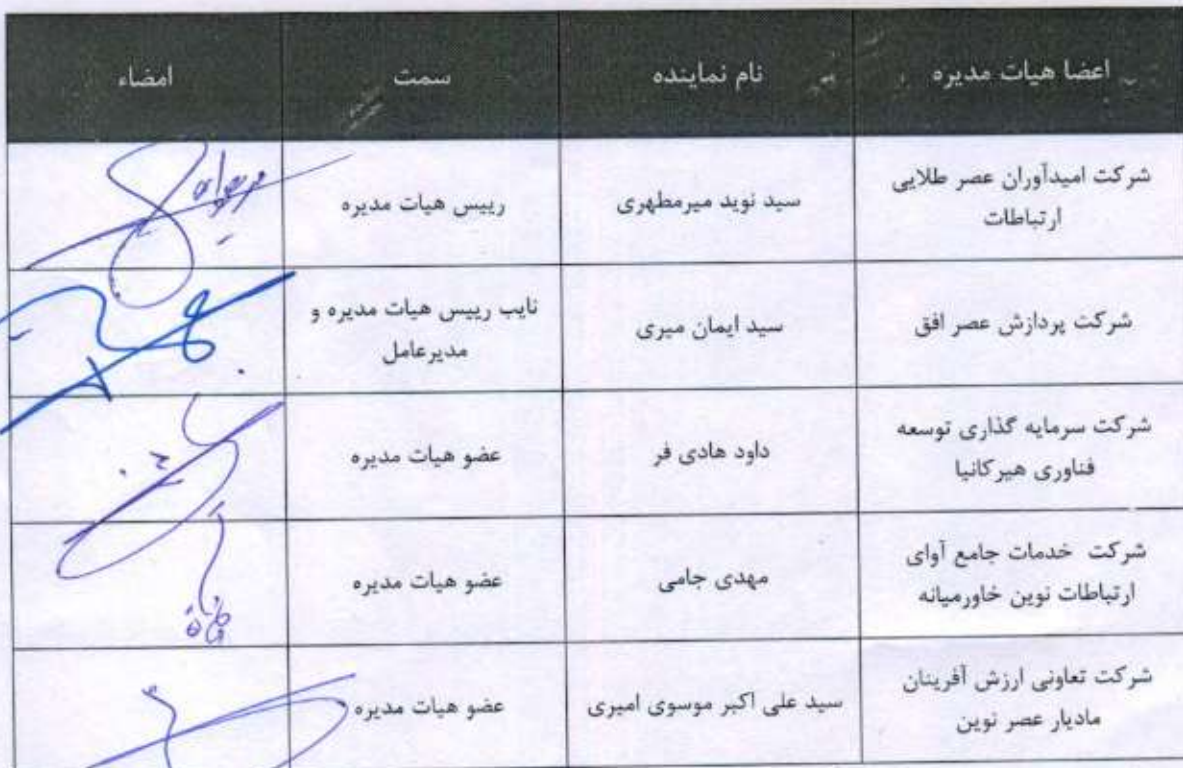 اعضا هیات مدیره	نام نماینده	سمت	امضاء
شرکت امیدآوران عصر طلایی
ارتباطات
سید نوید میرمطهری
رییس هیات مدیره
شرکت پردازش عصر افق
سید ایمان میری
نایب رییس هیات مدیره و
مدیرعامل
شرکت سرمایه گذاری توسعه
فناوری هیرکانیا
داود هادی فر
عضو هیات مدیره
شرکت خدمات جامع آوای
ارتباطات نوین خاورمیانه
مهدی جامی
عضو هیات مدیره
شرکت تعاونی ارزش آفرینان
مادیار عصر نوین
سید علی اکبر موسوی امیری
عضو هیات مدیره